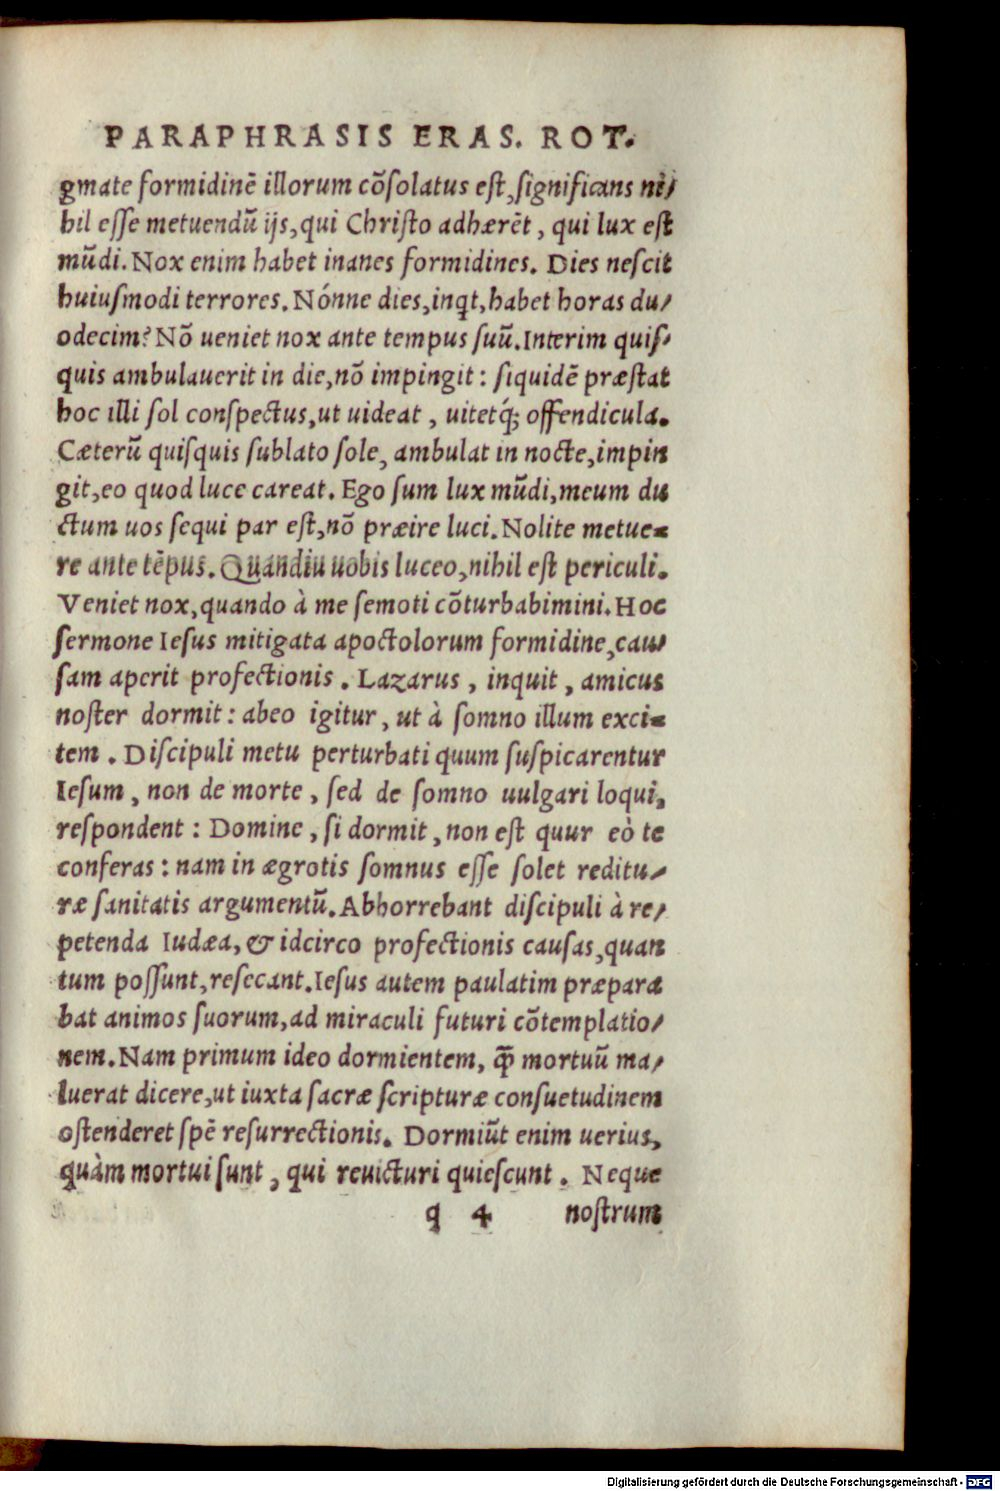 PARAPHRASIS ERAS. ROT.
gmate formidinē illorum cōsolatus est, significans ni/
hil esse metuendū ijs, qui Christo adhærēt, qui lux est
mūdi. Nox enim habet inanes formidines. Dies nescit
huiusmodi terrores. Nónne dies, inqt, habet horas du/
odecim? Nō ueniet nox ante tempus suū. Interim quis/
quis ambulauerit in die, nō impingit: siquidē præstat
hoc illi sol conspectus, ut uideat, uitetq́; offendicula.
Cæterū quisquis sublato sole, ambulat in nocte, impin
git, eo quod luce careat. Ego sum lux mūdi, meum du
ctum uos sequi par est, nō præire luci. Nolite metue=
re ante tēpus. Quandiu uobis luceo, nihil est periculi.
Veniet nox, quando à me semoti cōturbabimini. Hoc
sermone Iesus mitigata apoctolorum formidine, cau/
sam aperit profectionis. Lazarus, inquit, amicus
noster dormit: abeo igitur, ut à somno illum exci=
tem. Discipuli metu perturbati quum suspicarentur
Iesum, non de morte, sed de somno uulgari loqui,
respondent: Domine, si dormit, non est quur eò te
conferas: nam in ægrotis somnus esse solet reditu/
ræ sanitatis argumentū. Abhorrebant discipuli à re/
petenda Iudæa, & idcirco profectionis causas, quan
tum possunt, resecant. Iesus autem paulatim præpara
bat animos suorum, ad miraculi futuri cōtemplatio/
nem. Nam primum ideo dormientem, q̄ mortuū ma/
luerat dicere, ut iuxta sacræ scripturæ consuetudinem
ostenderet spē resurrectionis. Dormiūt enim uerius,
quàm mortui sunt, qui reuicturi quiescunt. Neque
q 4 nostrum
Digitalisierung gefördert durch die Deutsche Forschungsgemeinschaft - DFG